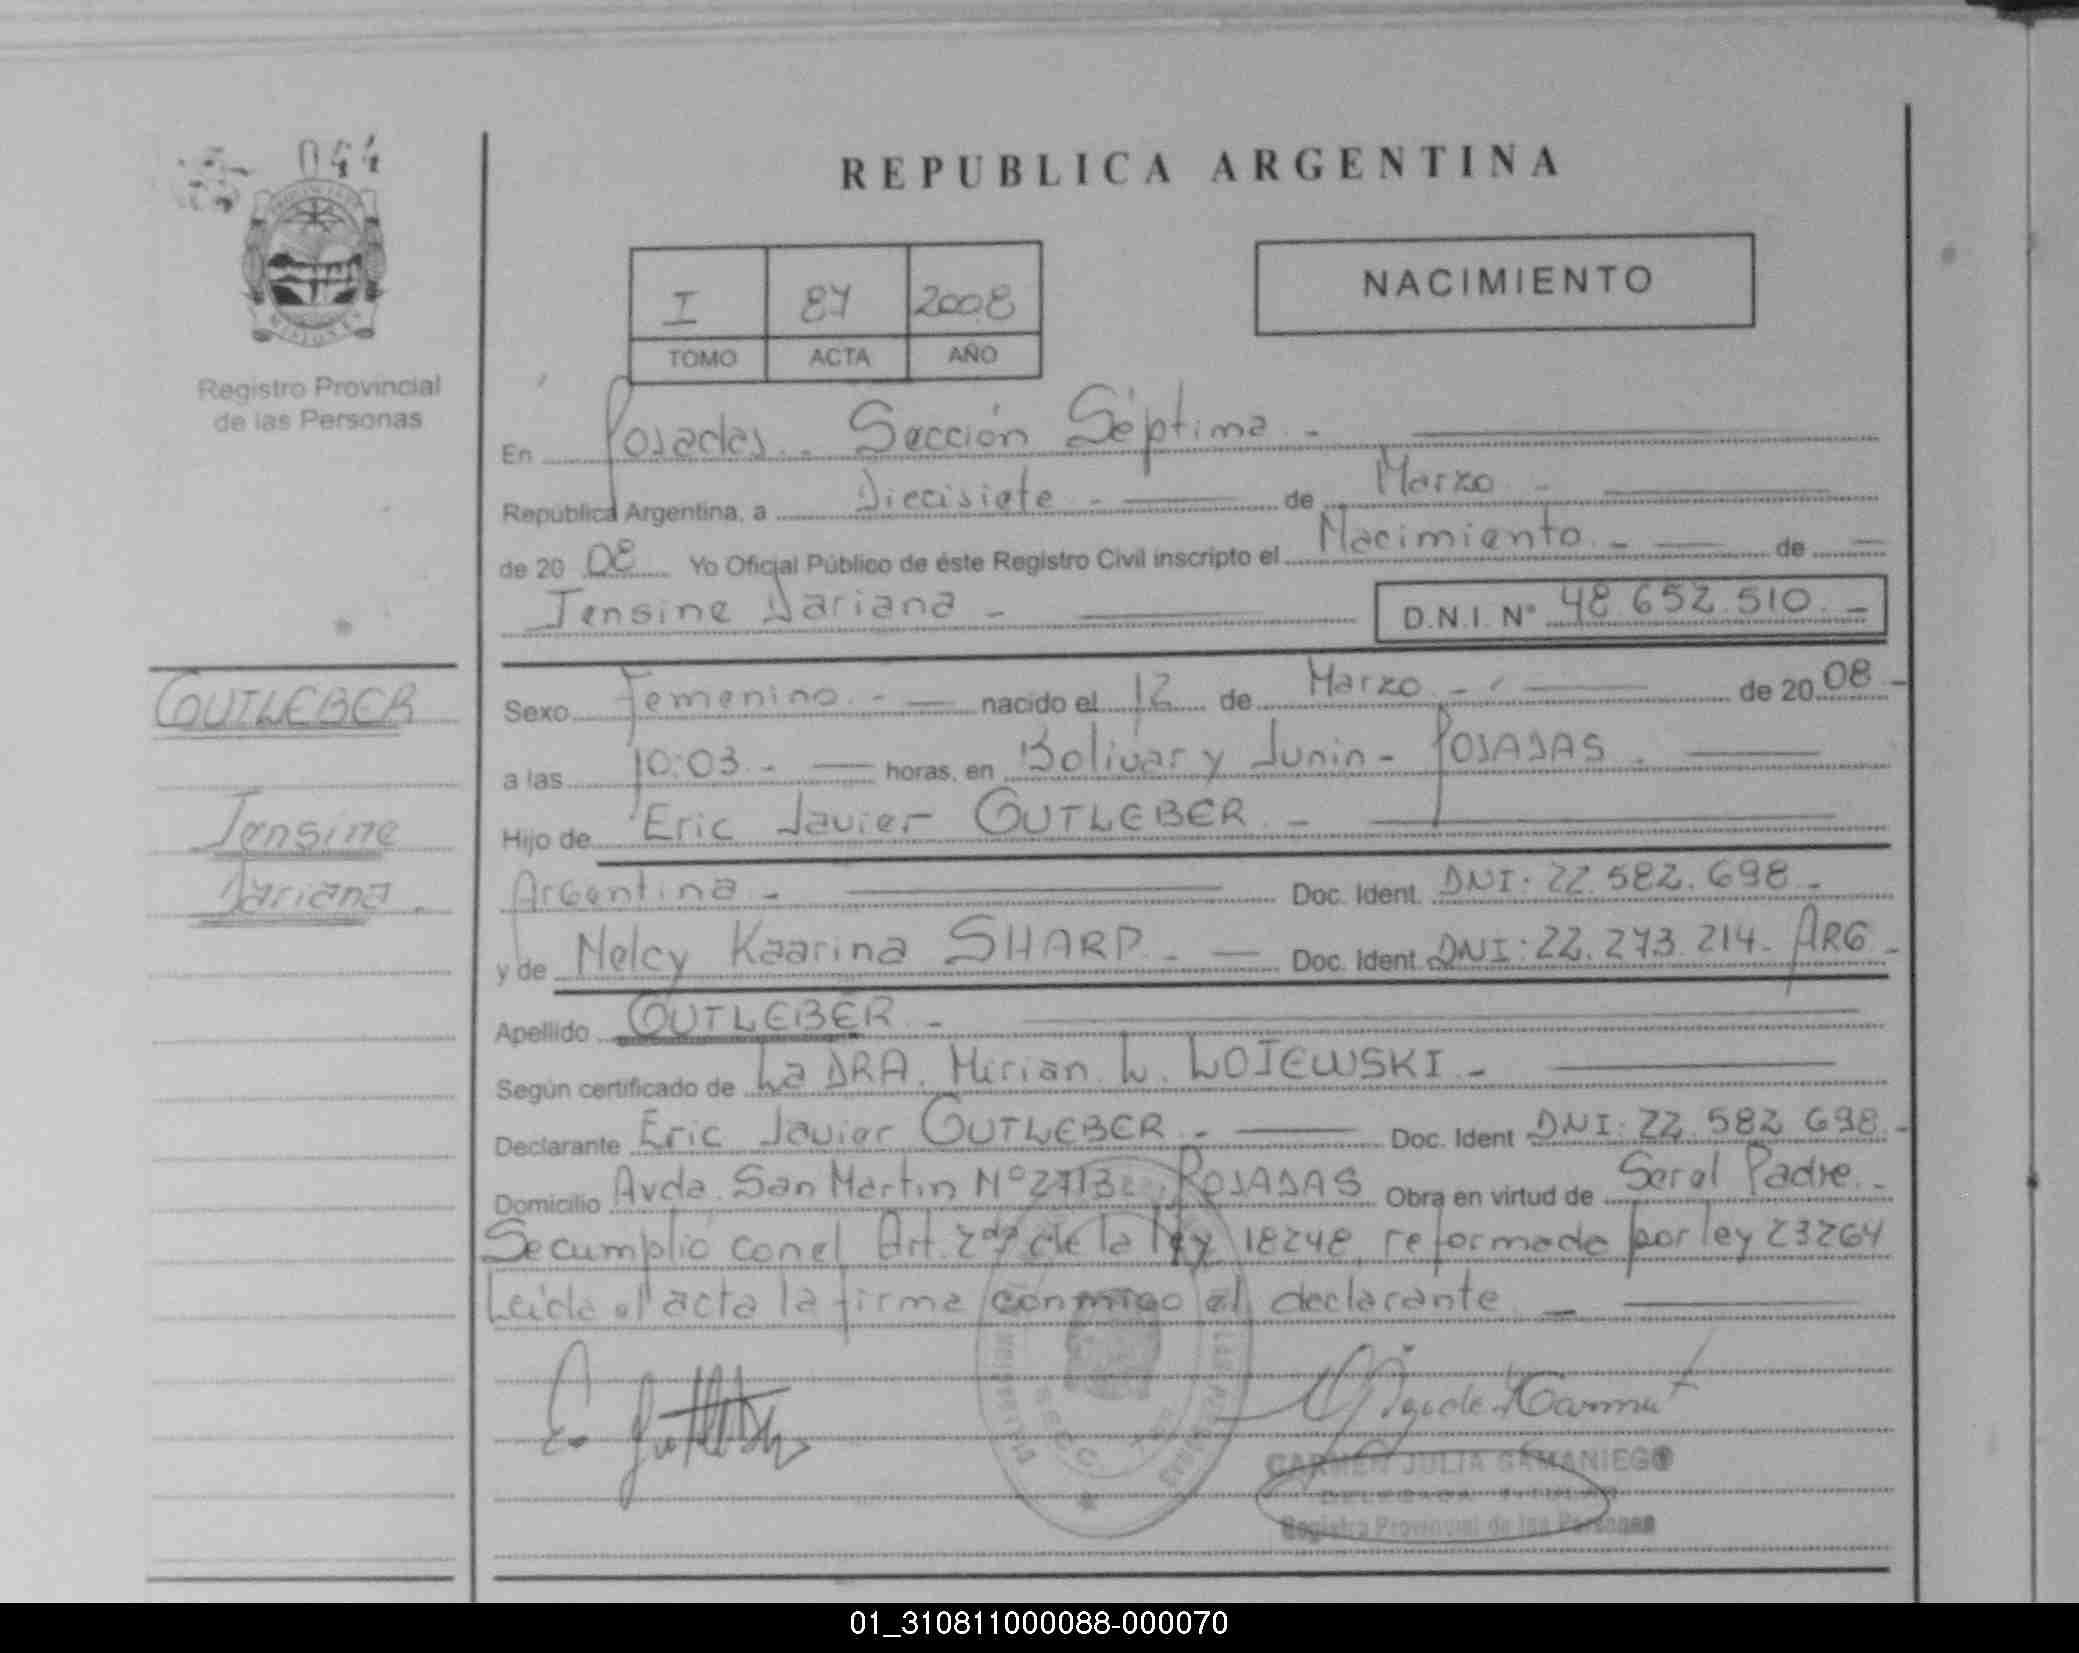 044
REPUBLICA ARGENTINA
I 87 2008
TOMO ACTA AÑO
NACIMIENTO
Registro Provincial
de las Personas
En Posadas - Sección Séptima. -
República Argentina, a Diecisiete - de Marzo -
de 20 08 Yo Oficial Público de éste Registro Civil inscripto el Nacimiento. - de -
Jensine Dariana - D.N.I. N° 48.652.510. -
GUTLEBER
Jensine
Dariana.
Sexo Femenino. - nacido el 12 de Marzo - de 20 08 -
a las 10:03. - horas, en Bolivar y Junin - POSADAS.
Hijo de Eric Javier GUTLEBER. -
Argentina - Doc. Ident. DNI: 22.582.698. -
y de Nelcy Kaarina SHARP. - Doc. Ident. DNI: 22.273.214- ARG -
Apellido GUTLEBER -
Según certificado de La DRA. Mirian. L. LOJEWSKI. -
Declarante Eric Javier GUTLEBER. - Doc. Ident DNI: 22.582.698. -
Domicilio Avda. San Martin N° 2713 POSADAS Obra en virtud de Ser el Padre. -
Se cumplió con el Art. 2do de la ley 18248, reformada por ley 23264
Leida el acta la firma conmigo el declarante. -
E. Gutleber
CARMEN JULIA SAMANIEGO
DELEGADA TITULAR
Registro Provincial de las Personas
01_310811000088-000070